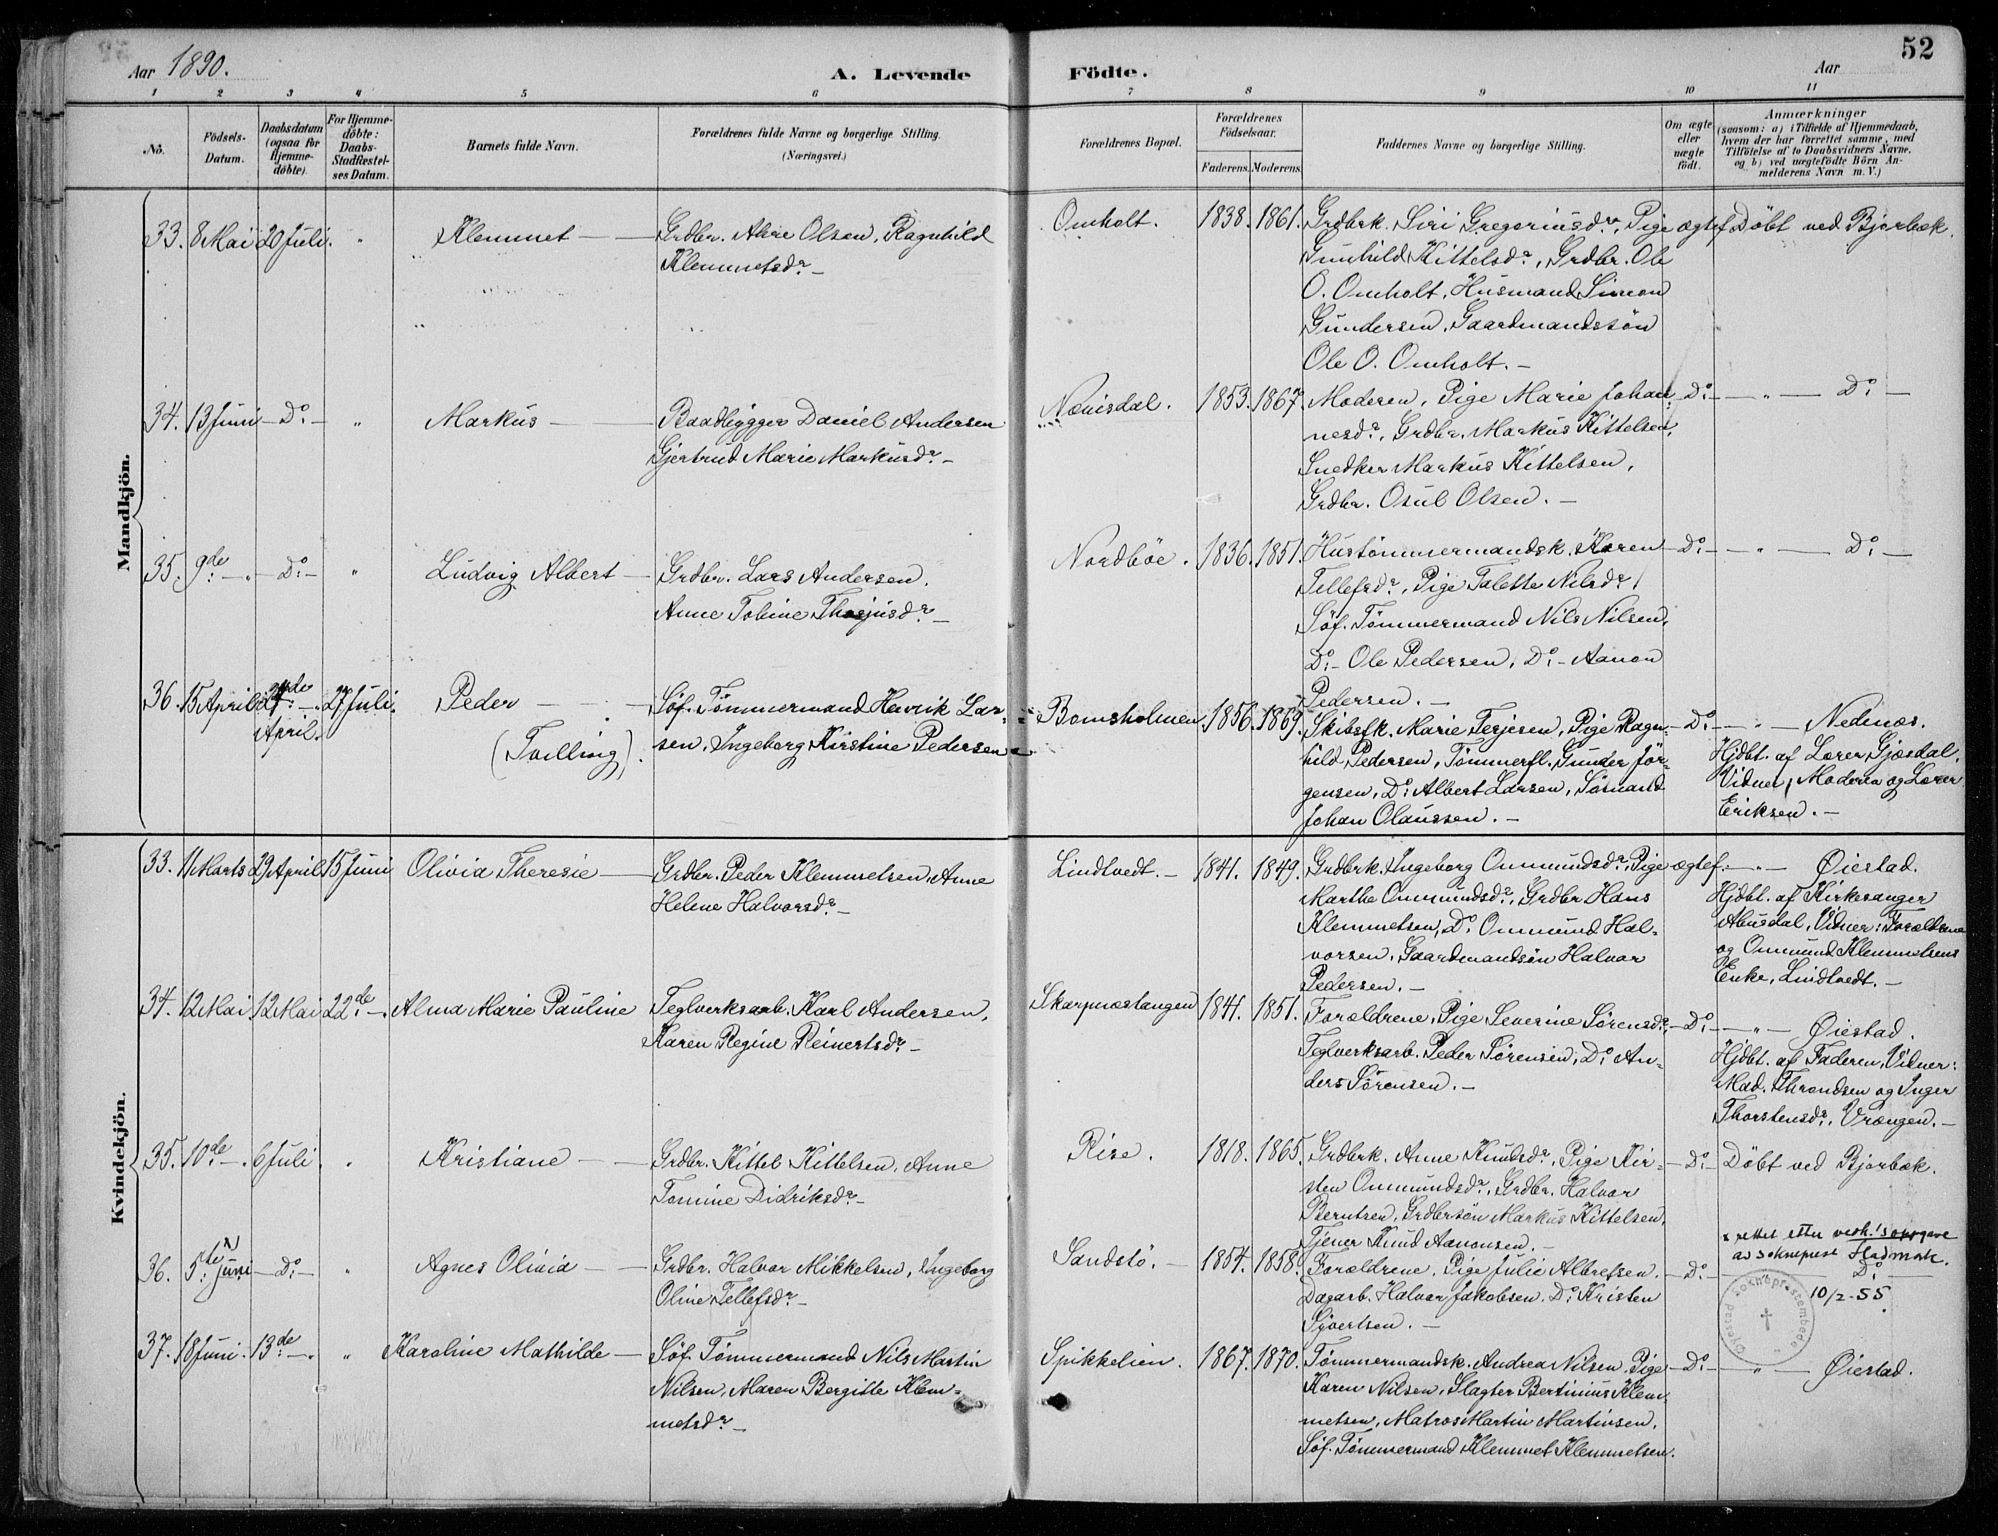 Aar 1890.
A. Levende
Födte.
Aar
52
1 2 3 4 5 6 7 8 9 10 11
No.
Födsels-Datum.
Daabsdatum (ogsaa for Hjemme-döbte).
For Hjemme-döbte: Daabs-Stadfæstel-ses Datum.
Barnets fulde Navn.
Forældrenes fulde Navne og borgerlige Stilling.
(Næringsvei.)
Forældrenes Bopæl.
Forældrenes Födselsaar.
Faderens. Moderens.
Faddernes Navne og borgerlige Stilling.
Om ægte eller uægte födt.
Anmærkninger
(saasom: a) i Tilfælde af Hjemmedaab,
hvem der har forrettet samme, med
Tilföielse af to Daabsvidners Navne.
og b) ved uægtefödte Börn An-
melderens Navn m. V.)
Mandkjön.
33. 8 Mai 20 Juli. " Klemmet — Grdbr. Aare Olsen, Ragnhild
Klemmetsdr. —
Omholt. 1838. 1861. Grdbrk. Siri Gregoriusdr., Pige ægtef. Döbt ved Bjorbæk.
Gunhild Kittelsdr., Grdbr. Ole
O. Omholt, Husmand Simon
Gundersen, Gaardmandssön
Ole O. Omholt. —
34. 13 Juni — Do. — " Markus — Baadbygger Daniel Andersen
Gjertrud Marie Markusdr. —
Nævisdal. 1853. 1867. Moderen, Pige Marie Johan- — Do. — " — Do. —
nesdr., Grdbr. Markus Kittelsen,
Snedker Markus Kittelsen,
Grdbr. Osul Olsen. —
35. 9de — " — Do. — " Ludvig Albert — Grdbr. Lars Andersen.
Anne Tobine Thorjusdr. —
Nordböe. 1836. 1851. Hustömmermandsk. Karen — Do. — " — Do. —
Tellefsdr., Pige Talette Nilsdr,
Söf. Tömmermand Nils Nilsen,
Do. — Ole Pedersen, Do. — Aanon
Pedersen. —
36. 15 April 27de — April. 27 Juli. Peder — Söf. Tömmermand Henrik Lar-
(Tvilling). sen, Ingeborg Kirstine Pedersen —
Bomsholmen. 1856. 1869. Skibsfk. Marie Terjesen, Pige Ragn- — Do. — " — Nedenæs.
hild Pedersen, Tömmerfl. Gunder Jör- Hjdbt. af Lærer Gjæsdal,
gensen, Do. Albert Larsen, Sömand Vidner, Moderen og Lærer
Johan Olaussen. — Eriksen. —
Kvindekjön.
33. 11 Marts 29 April 15 Juni Olivia Theresie — Grdbr. Peder Klemmetsen, Anne
Helene Halvorsdr. —
Lindtvedt. — 1841. 1849. Grdbrk. Ingeborg Ommundsdr., Pige ægtef. — " — Øiestad.
Marthe Ommundsdr., Grdbr Hans Hjdbt. af Kirkesanger
Klemmetsen, Do. Ommund Hal- Abusdal, Vidner: Forældrene
vorsen, Gaardmandsön Halvor og Ommund Klemmetsens
Pedersen. — Enke, Lindtvedt. —
34. 12 Mai. 12 Mai 22de —. Alma Marie Pauline Teglverksarb. Karl Andersen,
Karen Regine Reinertsdr. —
Skarpnæstangen 1841. 1851. Forældrene, Pige Severine Sörensdr. — Do. — " — Øiestad.
Teglverksarb. Peder Sörensen, Do. An- Hjdbt. af Faderen, Vidner:
ders Sörensen. — Mad. Throndsen og Inger
Thorstensdr., Vrængen. —
35. 10de —. 6 Juli. " Kristiane — Grdbr. Kittel Kittelsen, Anne
Tomine Didriksdr. —
Rise. 1818. 1865. Grdbrk. Anne Knudsdr., Pige Kir- — Do. — Döbt ved Bjorbæk.
sten Ommundsdr., Grdbr. Halvor
Berntsen, Grdbrsön Markus Kittelsen,
Tjener Knud Aanonsen. —
36. 5te Juni — Do. — " Agnes Olivia — Grdbr. Halvor Mikkelsen, Ingeborg
Oline Tellefsdr. —
Sandstö. — 1854. 1858. Forældrene, Pige Julie Albretsen. — Do. — Do.
Dagarb. Halvor Jakobsen, Do. Kristen
Sjvertsen. —
x rettet etter vedk.'s oppgave
av sokneprest Hadmark.
10/2-55
Øyestad sokneprestembede
37. 18 Juni. 13de —. " Karoline Mathilde — Söf. Tömmermand Nils Martin
Nilsen, Maren Bergitte Klem-
metsdr. —
Spikkelien. 1867. 1870. Tömmermandsk. Andrea Nilsen, Pige — Do. — " — Øiestad.
Karen Nilsen, Slagter Bertinius Klem-
metsen, Matros Martin Martinsen,
Söf. Tömmermand Klemmet Klemmetsen.